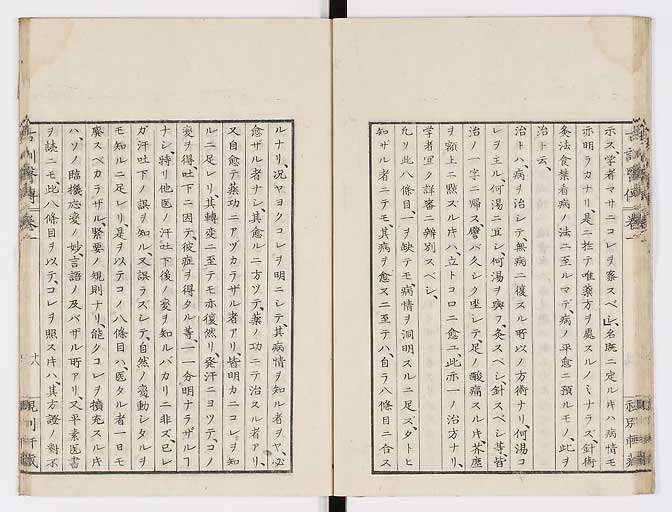 示ス、学者マサニコレヲ察スベシ、名既ニ定ルキハ病情モ
亦明ラカナリ、是ニ於テ唯薬方ヲ處スルノミナラズ、針術
灸法食禁看病ノ法ニ至ルマデ、病ノ平愈ニ預ルモノ、此ヲ
治ト云、
治トハ、病ヲ治シテ、無病ニ復スル所以ノ方術ナリ、何湯コ
レヲ主ル、何湯ニ宜シ、何湯ヲ與フ、灸スベシ、針スベシ等、皆
治ノ一字ニ帰ス、譬バ久シク坐シテ足ノ酸痛スルキ、芥塵
ヲ額上ニ點ズルキハ、立トコロニ愈ユ、此亦一ノ治方ナリ、
学者宜ク詳審ニ辨別スベシ、
凢ソ此八條目、一ヲ缺テモ、病情ヲ洞明スルニ足ズ、タトヒ
知ザル者ニテモ、其病ヲ愈スニ至テハ、自ラ八條目ニ合ス
ルナリ、况ヤヨクコレヲ明ニシテ、其病情ヲ知ル者ヲヤ、必
愈ザル者ナシ、其愈ルニ方ツテ、薬ノ功ニテ治スル者アリ、
又自愈テ薬功ニアヅカラザル者アリ、皆明カニコレヲ知
ルニ足レリ、其轉変ニ至テモ亦復然リ、発汗ニヨツテ、コノ
変ヲ得、吐下ニ因テ、彼症ヲ得タル等、一一分明ナラザルヿ
ナシ、特リ他医ノ汗吐下後ノ変ヲ知ルバカリニ非ズ、己レ
ガ汗吐下ノ誤ヲ知ル、又誤ラズシテ、自然ノ変動シタルヲ
モ知ルニ足レリ、是ヲ以テコノ八條目ハ、医タル者一日モ
廢スベカラザル、緊要ノ規則ナリ、能クコレヲ擴充スルキ
ハ、ソノ臨機應変ノ妙、言語ノ及バザル所アリ、又平素医書
ヲ読ニモ、此八條目ヲ以テ、コレヲ照スキハ、其方證ノ對不